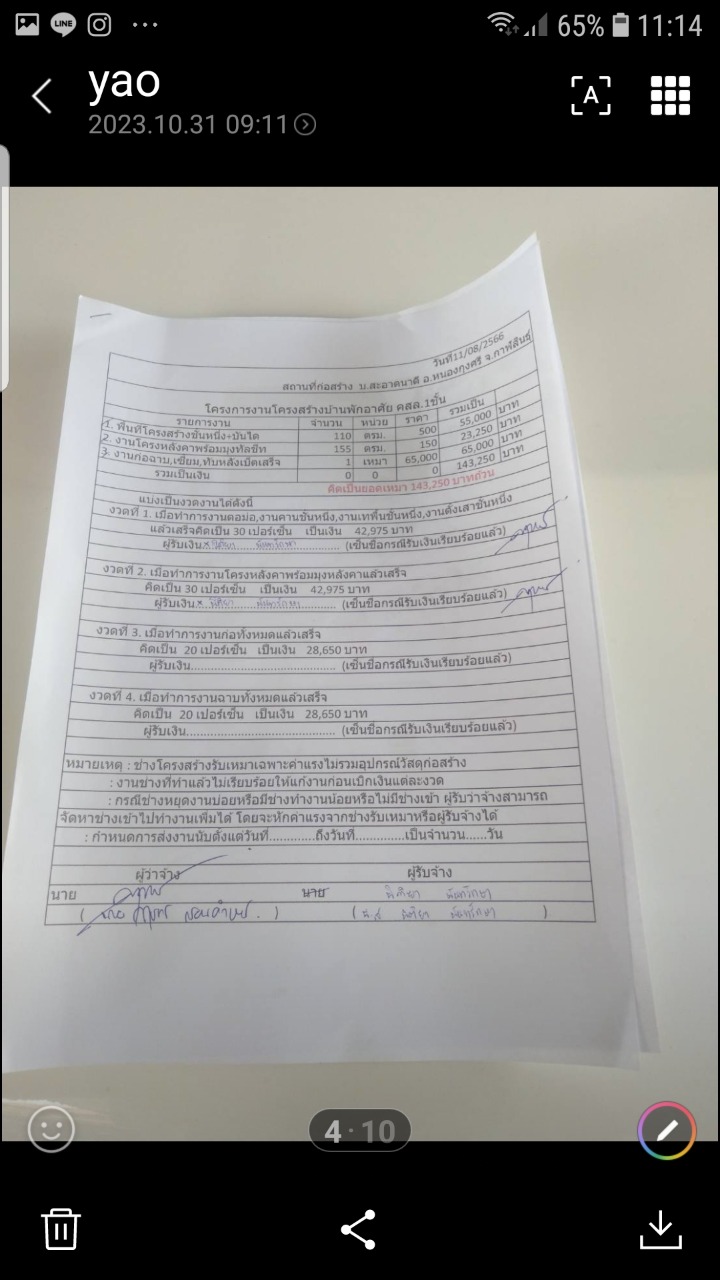 LINE
65% 11:14
yao
2023.10.31 09:11
A
วันที่11/08/2566
สถานที่ก่อสร้าง บ.สะอาดนาดี อ.หนองกุงศรี จ.กาฬสินธุ์
โครงการงานโครงสร้างบ้านพักอาศัย คสล.1ชั้น
รายการงาน จำนวน หน่วย ราคา รวมเป็น
1. พื้นที่โครงสร้างชั้นหนึ่ง+บันได 110 ตรม. 500 55,000 บาท
2. งานโครงหลังคาพร้อมมุงทัลชีท 155 ตรม. 150 23,250 บาท
3. งานก่อฉาบ,เชี่ยม,ทับหลังเบ็ดเสร็จ 1 เหมา 65,000 65,000 บาท
รวมเป็นเงิน 0 0 0 143,250 บาท
คิดเป็นยอดเหมา 143,250 บาทถ้วน
แบ่งเป็นงวดงานได้ดังนี้
งวดที่ 1. เมื่อทำการงานตอม่อ,งานคานชั้นหนึ่ง,งานเทพื้นชั้นหนึ่ง,งานตั้งเสาชั้นหนึ่ง
แล้วเสร็จคิดเป็น 30 เปอร์เซ็น เป็นเงิน 42,975 บาท
ผู้รับเงิน (เซ็นชื่อกรณีรับเงินเรียบร้อยแล้ว)
งวดที่ 2. เมื่อทำการงานโครงหลังคาพร้อมมุงหลังคาแล้วเสร็จ
คิดเป็น 30 เปอร์เซ็น เป็นเงิน 42,975 บาท
ผู้รับเงิน (เซ็นชื่อกรณีรับเงินเรียบร้อยแล้ว)
งวดที่ 3. เมื่อทำการงานก่อทั้งหมดแล้วเสร็จ
คิดเป็น 20 เปอร์เซ็น เป็นเงิน 28,650 บาท
ผู้รับเงิน.......................................... (เซ็นชื่อกรณีรับเงินเรียบร้อยแล้ว)
งวดที่ 4. เมื่อทำการงานฉาบทั้งหมดแล้วเสร็จ
คิดเป็น 20 เปอร์เซ็น เป็นเงิน 28,650 บาท
ผู้รับเงิน.......................................... (เซ็นชื่อกรณีรับเงินเรียบร้อยแล้ว)
หมายเหตุ : ช่างโครงสร้างรับเหมาเฉพาะค่าแรงไม่รวมอุปกรณ์วัสดุก่อสร้าง
: งานช่างที่ทำแล้วไม่เรียบร้อยให้แก้งานก่อนเบิกเงินแต่ละงวด
: กรณีช่างหยุดงานบ่อยหรือมีช่างทำงานน้อยหรือไม่มีช่างเข้า ผู้รับว่าจ้างสามารถ
จัดหาช่างเข้าไปทำงานเพิ่มได้ โดยจะหักค่าแรงจากช่างรับเหมาหรือผู้รับจ้างได้
: กำหนดการส่งงานนับตั้งแต่วันที่.............ถึงวันที่.............เป็นจำนวน......วัน
ผู้ว่าจ้าง ผู้รับจ้าง
นาย นาย
4 · 10